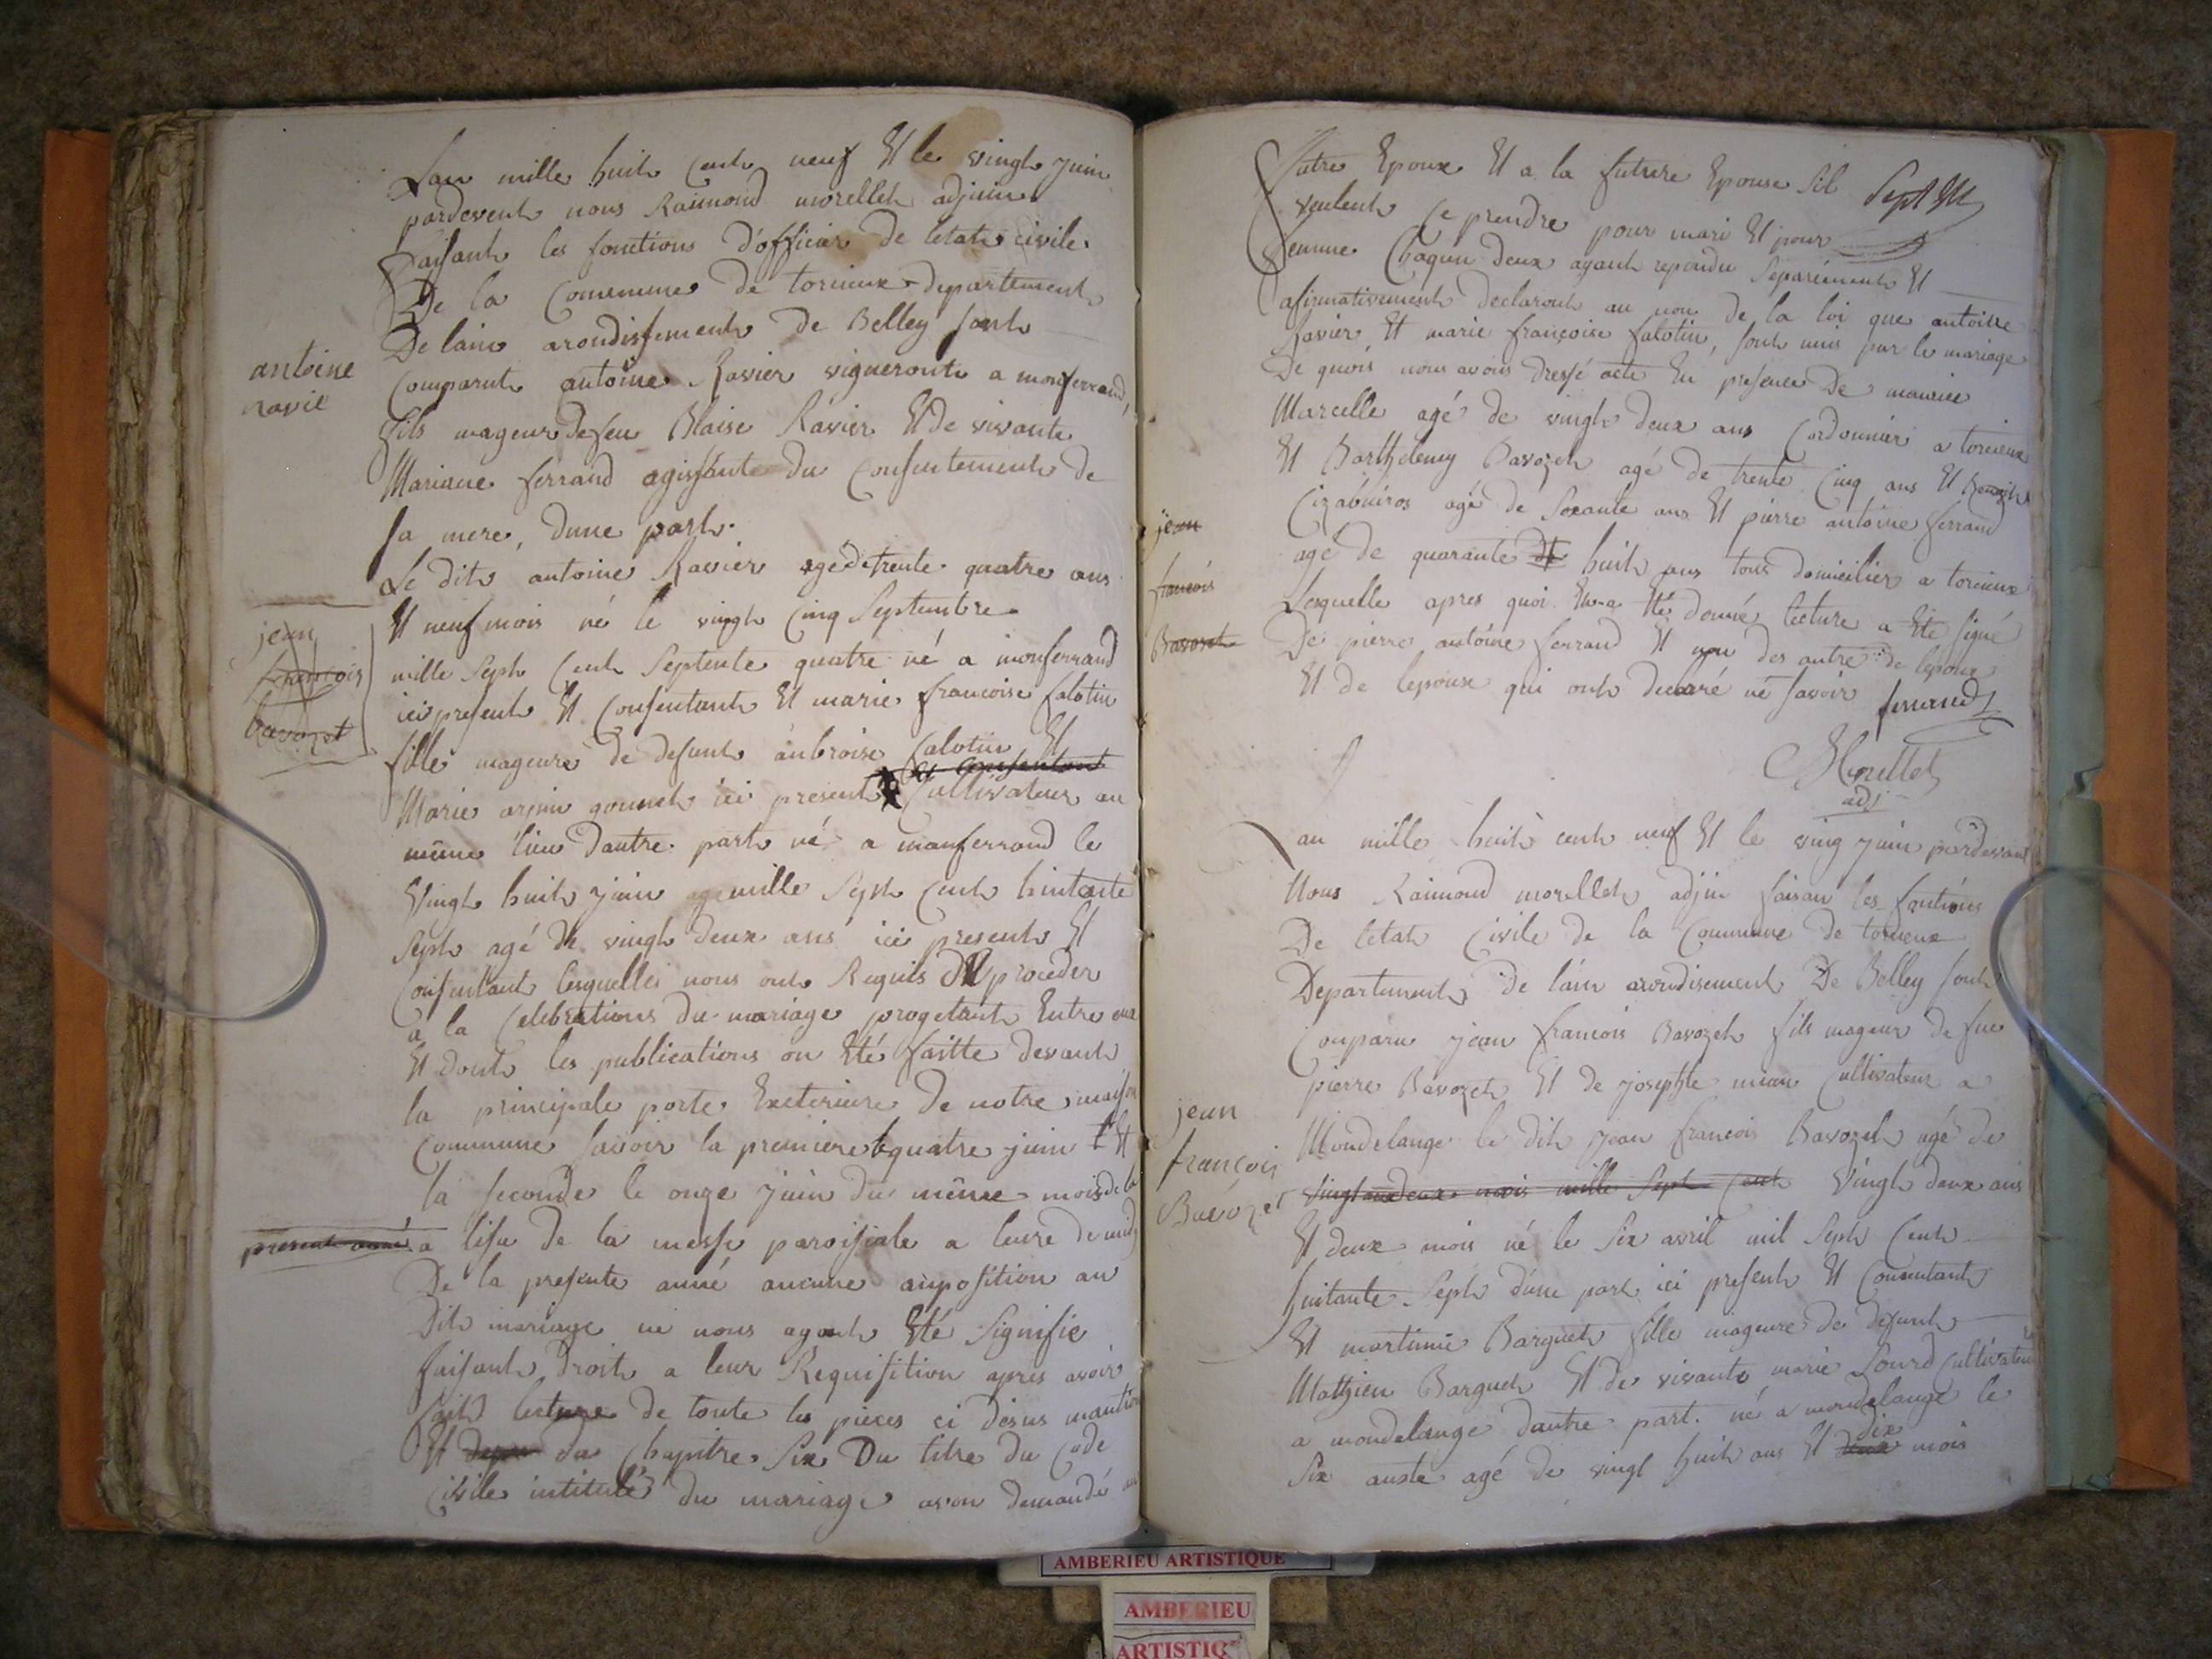 Lan mille huit cent neuf Et le vingt juin
pardevent nous Raimond morellet adjuin
faisant les fonctions d'officier de letat civile
De la Commune de torcieux departement
De lain arondissement de Belley sont
Comparut antoine Ravier vigneront a monferrand
antoine
ravie
fils mageur defeu Blaise Ravier Et de vivante
Mariane ferrand agissante du Consentement de
sa mere, dune part.
Le dit antoine Ravier agé de trente quatre ans
Et neuf mois né le vingt cinq Septembre
jean
francois
bavozet
mille Sept Cent Septente quatre né a monferrand
ici present Et Consentant Et marie francoise falotin
fille mageure de defunt anbroise falotin Et
Et consentant
Marie gounet ici present Cultivateur au
même lieu dautre part né a monferrand le
Vingt huit juin mille Sept Cent huitante
Sept agé de vingt deux ans ici present Et
Consentant lesquelles nous ont Requis de proceder
a la Celebrations du mariage progetant Entre eux
Et dont les publications on Eté faitte devant
la principale porte Exterieure de notre maison
Commune savoir la premiere le quatre juin Et
la seconde le onze juin du même mois de la
presente anné a lisue de la messe paroissiale a leure de midy
De la presente anné aucune oposition au
Dit mariage ne nous ayant Eté Signifié
faisant Droit a leur Requisition apres avoir
fait lecture de toute les pieces ci desus mantion
Et du Chapitre Six Du titre du Code
Civile intitulé du mariage avon demandé au
futre Epoux Et a la futrure Epouse Sil
Veulent ce prendre pour mari Et pour
femme Chaqun deux ayant repondu Separément Et
afirmativement declaront au nom de la loi que antoine
Ravier Et marie françoise falotin, sont unis par le mariage
De quois nous avons dressé acte En presence De maurice
Marcelle agé de vingt deux ans Cordonnier a torcieux
Et Barthelemy Bavozet agé de trente Cinq ans Et Benoit
agé de Soxante ans Et pierre antoine ferrand
jean
francois
Bavozet
agé de quarante huit ans tous domicilier a torcieux
Lesquelle apres quoi Eté donné lecture a Eté signé
De pierre antoine ferrand Et non des autre de lepoux
Et de lepouse qui ont declaré né savoir ferrand
Morellet
adj
Lan mille huit cent neuf Et le ving juin pardevant
Nous Raimond morellet adjin faisan les fontions
De letat Civile de la Commune de torcieux
Departement De lain arondisement De Belley sont
Conparu jean francois Bavozet fils mageur de fue
pierre Bavozet Et de josephte mian Cultivateur a
jean
françois
Bavozet
Mondelange le dit jean francois Bavozet agé de
Vingt deux ans
Et deux mois né le Six avril mil Sept Cent
huitante Sept dune part ici present Et Consentant
Et martinne Barguet fille mageure de defunt
Mathieu Barguet Et de vivante marie Lourd Cultivateur
a mondelange dautre part. né a mondelange le
Six auste agé de vingt huit ans Et dix mois
AMBERIEU ARTISTIQUE
AMBERIEU
ARTISTIQ